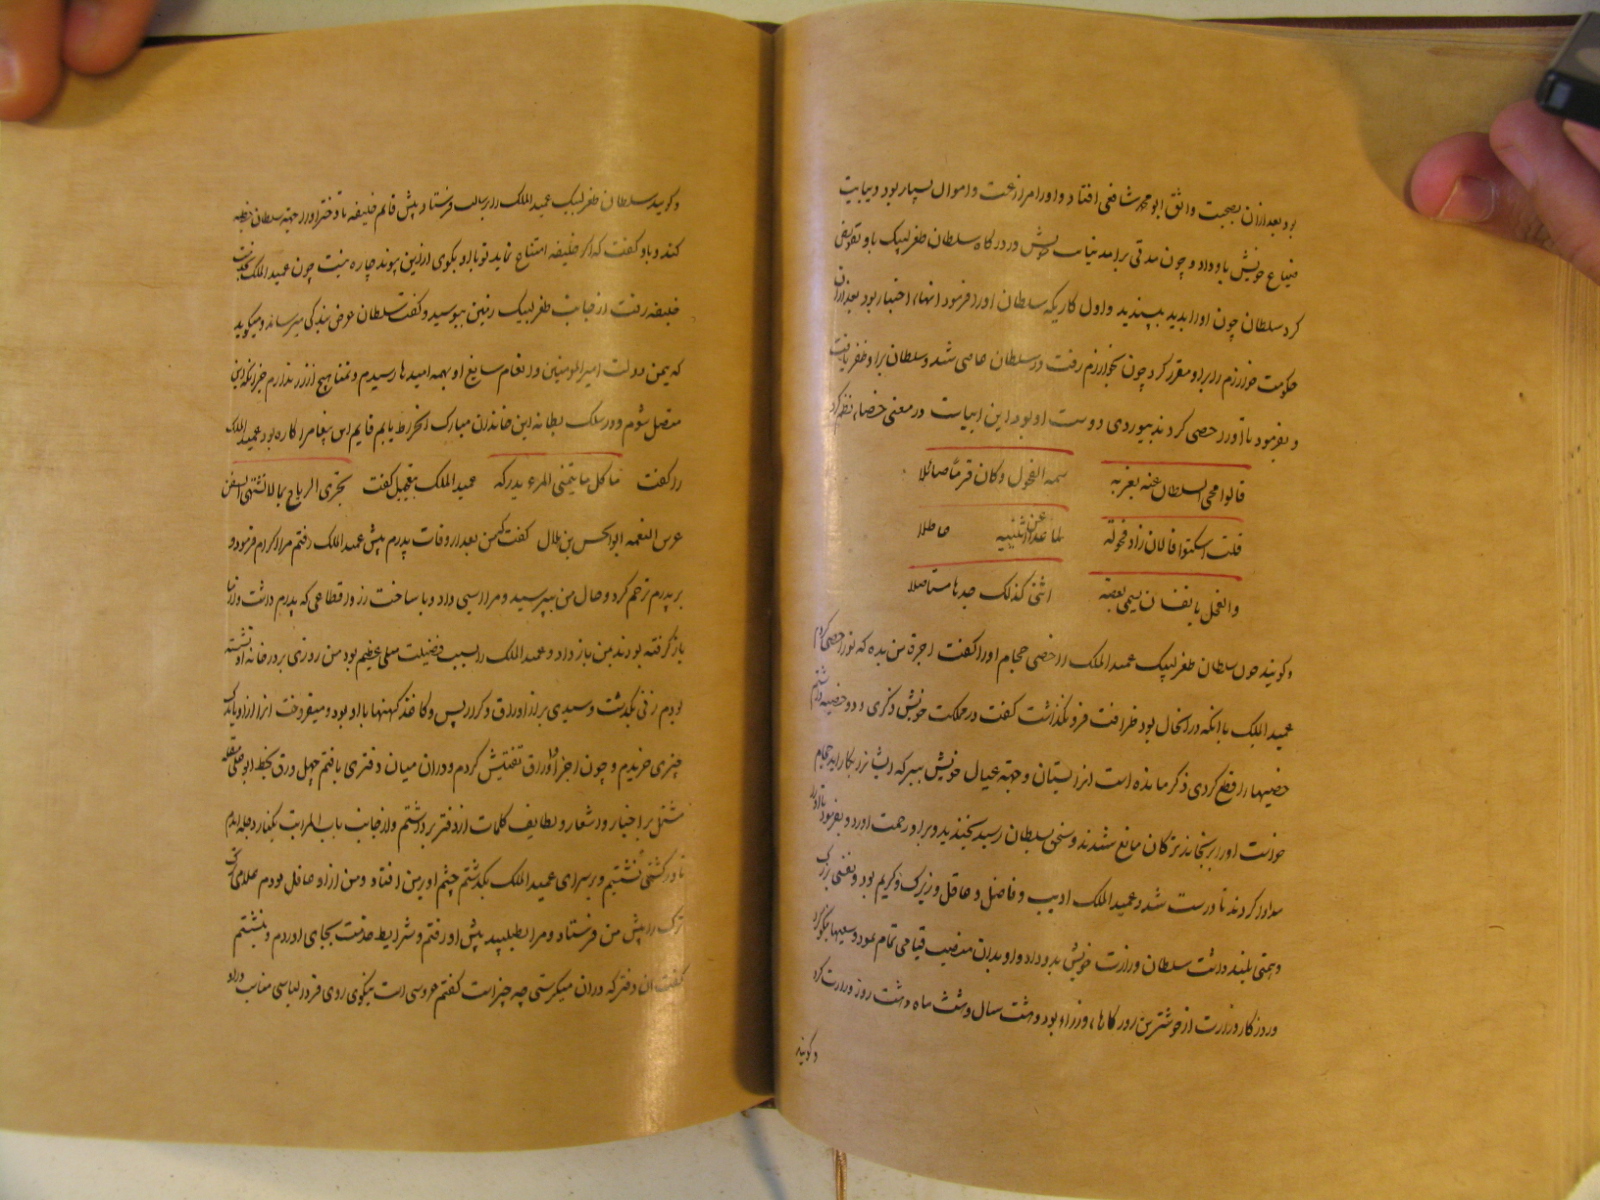 بود بعد ازان بصحبت واثق ابو محمد شافعی افتاد و او را مراعت و اموال بسیار بود و نیابت
ضیاع خویش باو داد و چون مدتی برامد نیابت خویش در درکاه سلطان طغرلبیک باو تفویض
کرد سلطان چون او را بدید بپسندید و اول کاریکه سلطان او را فرمود انهاء اخبار بود بعد ازان
حکومت خوارزم را برو مقرر کرد چون بخوارزم رفت در سلطان عاصی شد و سلطان برو ظفر یافت
و بفرمود تا او را خصی کردند بیوردی دوست او بود این ابیات در معنی خصاء نظم کرد
قالوا محی السلطان عنه بعزبه سمه الفحول وکان قرما صائلا
قلت اسکتوا فالان زاد فحولة لما غدا عن انثییه عاطلا
والفحل یانف ان یسمی بعضه انثی کذلک جدها مستاصلا
و کویند چون سلطان طغرلبیک عمید الملک را خصی حجام او را کفت اجرة من بده که تو را خصی کردم
عمید الملک با انکه در انحال بود ظرافت فرو نکذاشت کفت در مملکت خویش ذکری و دو خصیه داشتم
خصیها را قطع کردی ذکر مانده است انرا بستان و جهة عیال خویش ببر که ایشانرا بکار اید حجام
خواست او را برنجاند ترکان مانع شدند و سخن بسلطان رسید بخندید و برو رحمت اورد و بفرمود تا او را
مداوا کردند تا درست شد و عمید الملک ادیب و فاضل و عاقل و زیرک و کریم بود و نفسی بزرک
و همتی بلند داشت سلطان وزارت خویش بدو داد و او بدان منصب قیامی تمام نمود و سعیها نیکو کرد
و روزکار وزارت او خوشترین روزکارها، وزراء بود و هشت سال و شش ماه و هشت روز وزارت کرد
و کویند
و کویند سلطان طغرلبیک عمید الملک را برسالت فرستاد پیش قایم خلیفه تا دختر او را جهة سلطان خطبه
کند و باو کفت که اکر خلیفه امتناع نماید تو با او بکوی از این پیوند چاره نیست چون عمید الملک بخدمت
خلیفه رفت از جانب طغرلبیک زمین ببوسید و کفت سلطان عرض بندکی میرساند و میکوید
که بیمن دولت امیر المومنین و انعام سابغ او بهمه امیدها رسیدم و تمناء هیچ ارزو ندارم جز انکه باین
متصل شوم و در سلک بطانه این خاندان مبارک انخراط یابم قایم این پیغام را کاره بود عمید الملک
را کفت ما کل ما یتمنی المرء یدرکه عمید الملک بتعجیل کفت تجری الریاح بما لا تشتهی السفن
غرس النعمه ابو الحسن بن هلال کفت که من بعد از وفات پدرم پیش عمید الملک رفتم مرا اکرام فرمود و
بر پدرم ترحم کرد و حال من بپرسید و مرا رسمی داد و با ساخت و اقطاعی که پدرم داشت و از ما
باز کرفته بودند بمن باز داد و عمید الملک را بسبب فضیلت میلی عظیم بود من روزی بر در خانه او نشسته
بودم زنی بکذشت و سبدی پر از اوراق و کراریس و کاغذ کهنها با او بود و میفروخت انرا از او باندک
چیزی خریدم و چون اجزا و اوراق تفتیش کردم و دران میان دفتری یافتم چهل ورق بخط ابو علی مقله
مشتمل بر اخبار و اشعار و لطایف کلمات ان دفتر برداشتم و از جانب باب المراتب بکنار دجله امدم
تا در کشتی نشستیم و بر سرای عمید الملک بکذشتم چشم او بر من افتاد و من از او غافل بودم غلامی ترک
ترک را پیش من فرستاد و مرا بطلبید پیش او رفتم و شرایط خدمت بجای اوردم و بنشستم
کفت ان دفتر که دران مینکرستی چه چیز است کفتم عروسی است نیکوی روی در لباسی مناسب